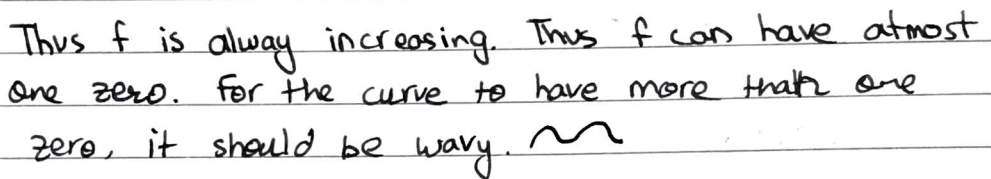 Thus f is alway increasing. Thus f can have atmost
one zero. For the curve to have more than one
zero, it should be wavy.